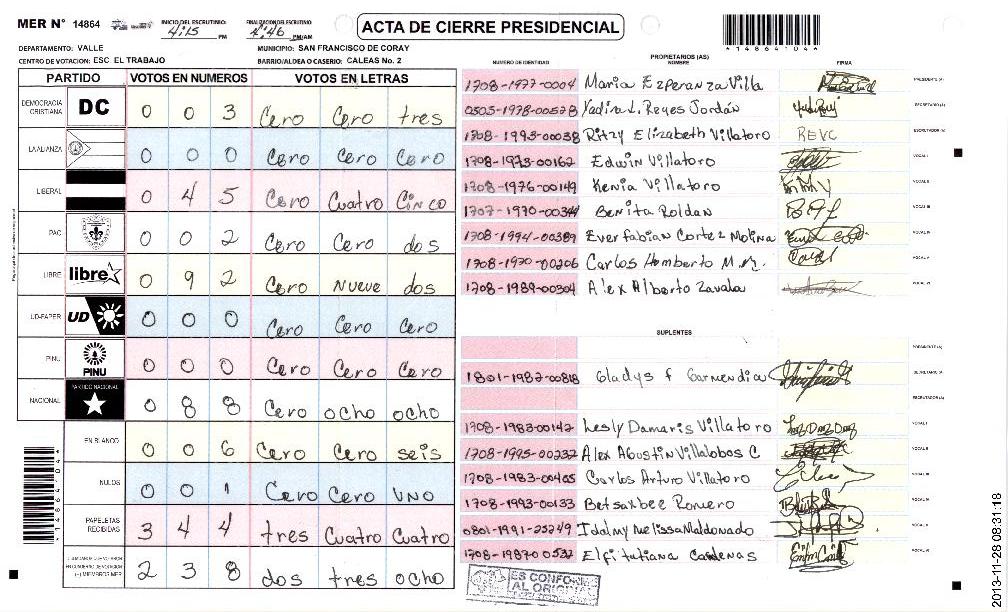 MER N° 14864
INICIO DEL ESCRUTINIO
4:15 PM
FINALIZACION DEL ESCRUTINIO
4:46 PM/AM
ACTA DE CIERRE PRESIDENCIAL
*14864104*
DEPARTAMENTO: VALLE
MUNICIPIO: SAN FRANCISCO DE CORAY
CENTRO DE VOTACION: ESC EL TRABAJO
BARRIO/ALDEA O CASERIO: CALEAS No. 2
PARTIDO VOTOS EN NUMEROS VOTOS EN LETRAS
DEMOCRACIA CRISTIANA DC 0 0 3 Cero Cero tres
LA ALIANZA 0 0 0 Cero Cero Cero
LIBERAL 0 4 5 Cero Cuatro Cinco
PAC 0 0 2 Cero Cero dos
LIBRE libre 0 9 2 Cero Nueve dos
UD-FAPER UD 0 0 0 Cero Cero Cero
PINU PINU 0 0 0 Cero Cero Cero
NACIONAL PARTIDO NACIONAL 0 8 8 Cero ocho ocho
EN BLANCO 0 0 6 Cero Cero seis
NULOS 0 0 1 Cero Cero uno
PAPELETAS RECIBIDAS 3 4 4 tres Cuatro Cuatro
(+) MIEMBROS MER 2 3 8 dos tres ocho
*14864104*
PROPIETARIOS (AS)
NUMERO DE IDENTIDAD NOMBRE FIRMA
1708-1977-0004 Maria Ezperanza Villa PRESIDENTE (A)
0505-1978-00578 Yadira L. Reyes Jordán SECRETARIO (A)
1708-1993-00038 Ritzy Elizabeth Villatoro REVC ESCRUTADOR (A)
1708-1973-00162 Edwin Villatoro VOCAL I
1708-1976-00149 Kenia Villatoro VOCAL II
1707-1970-00344 Benita Roldan VOCAL III
1708-1994-00389 Ever fabian Cortez Molina VOCAL IV
1708-1970-00206 Carlos Homberto M.M. VOCAL V
1708-1989-00304 Alex Alberto Zavala VOCAL VI
SUPLENTES
PRESIDENTE (A)
1801-1982-00818 Gladys F Garmendia SECRETARIO (A)
ESCRUTADOR (A)
1708-1983-00142 Lesly Damaris Villatoro VOCAL I
1708-1995-00232 Alex Agustin Villalobos C VOCAL II
1708-1983-00465 Carlos Arturo Villatoro VOCAL III
1708-1993-00133 Betsabee Romero VOCAL IV
0801-1991-25249 Idalmy Melissa Maldonado VOCAL V
1708-1987-00532 Elfi tutiana Cardenas VOCAL VI
ES CONFORME
AL ORIGINAL
2013-11-28 08:31:18